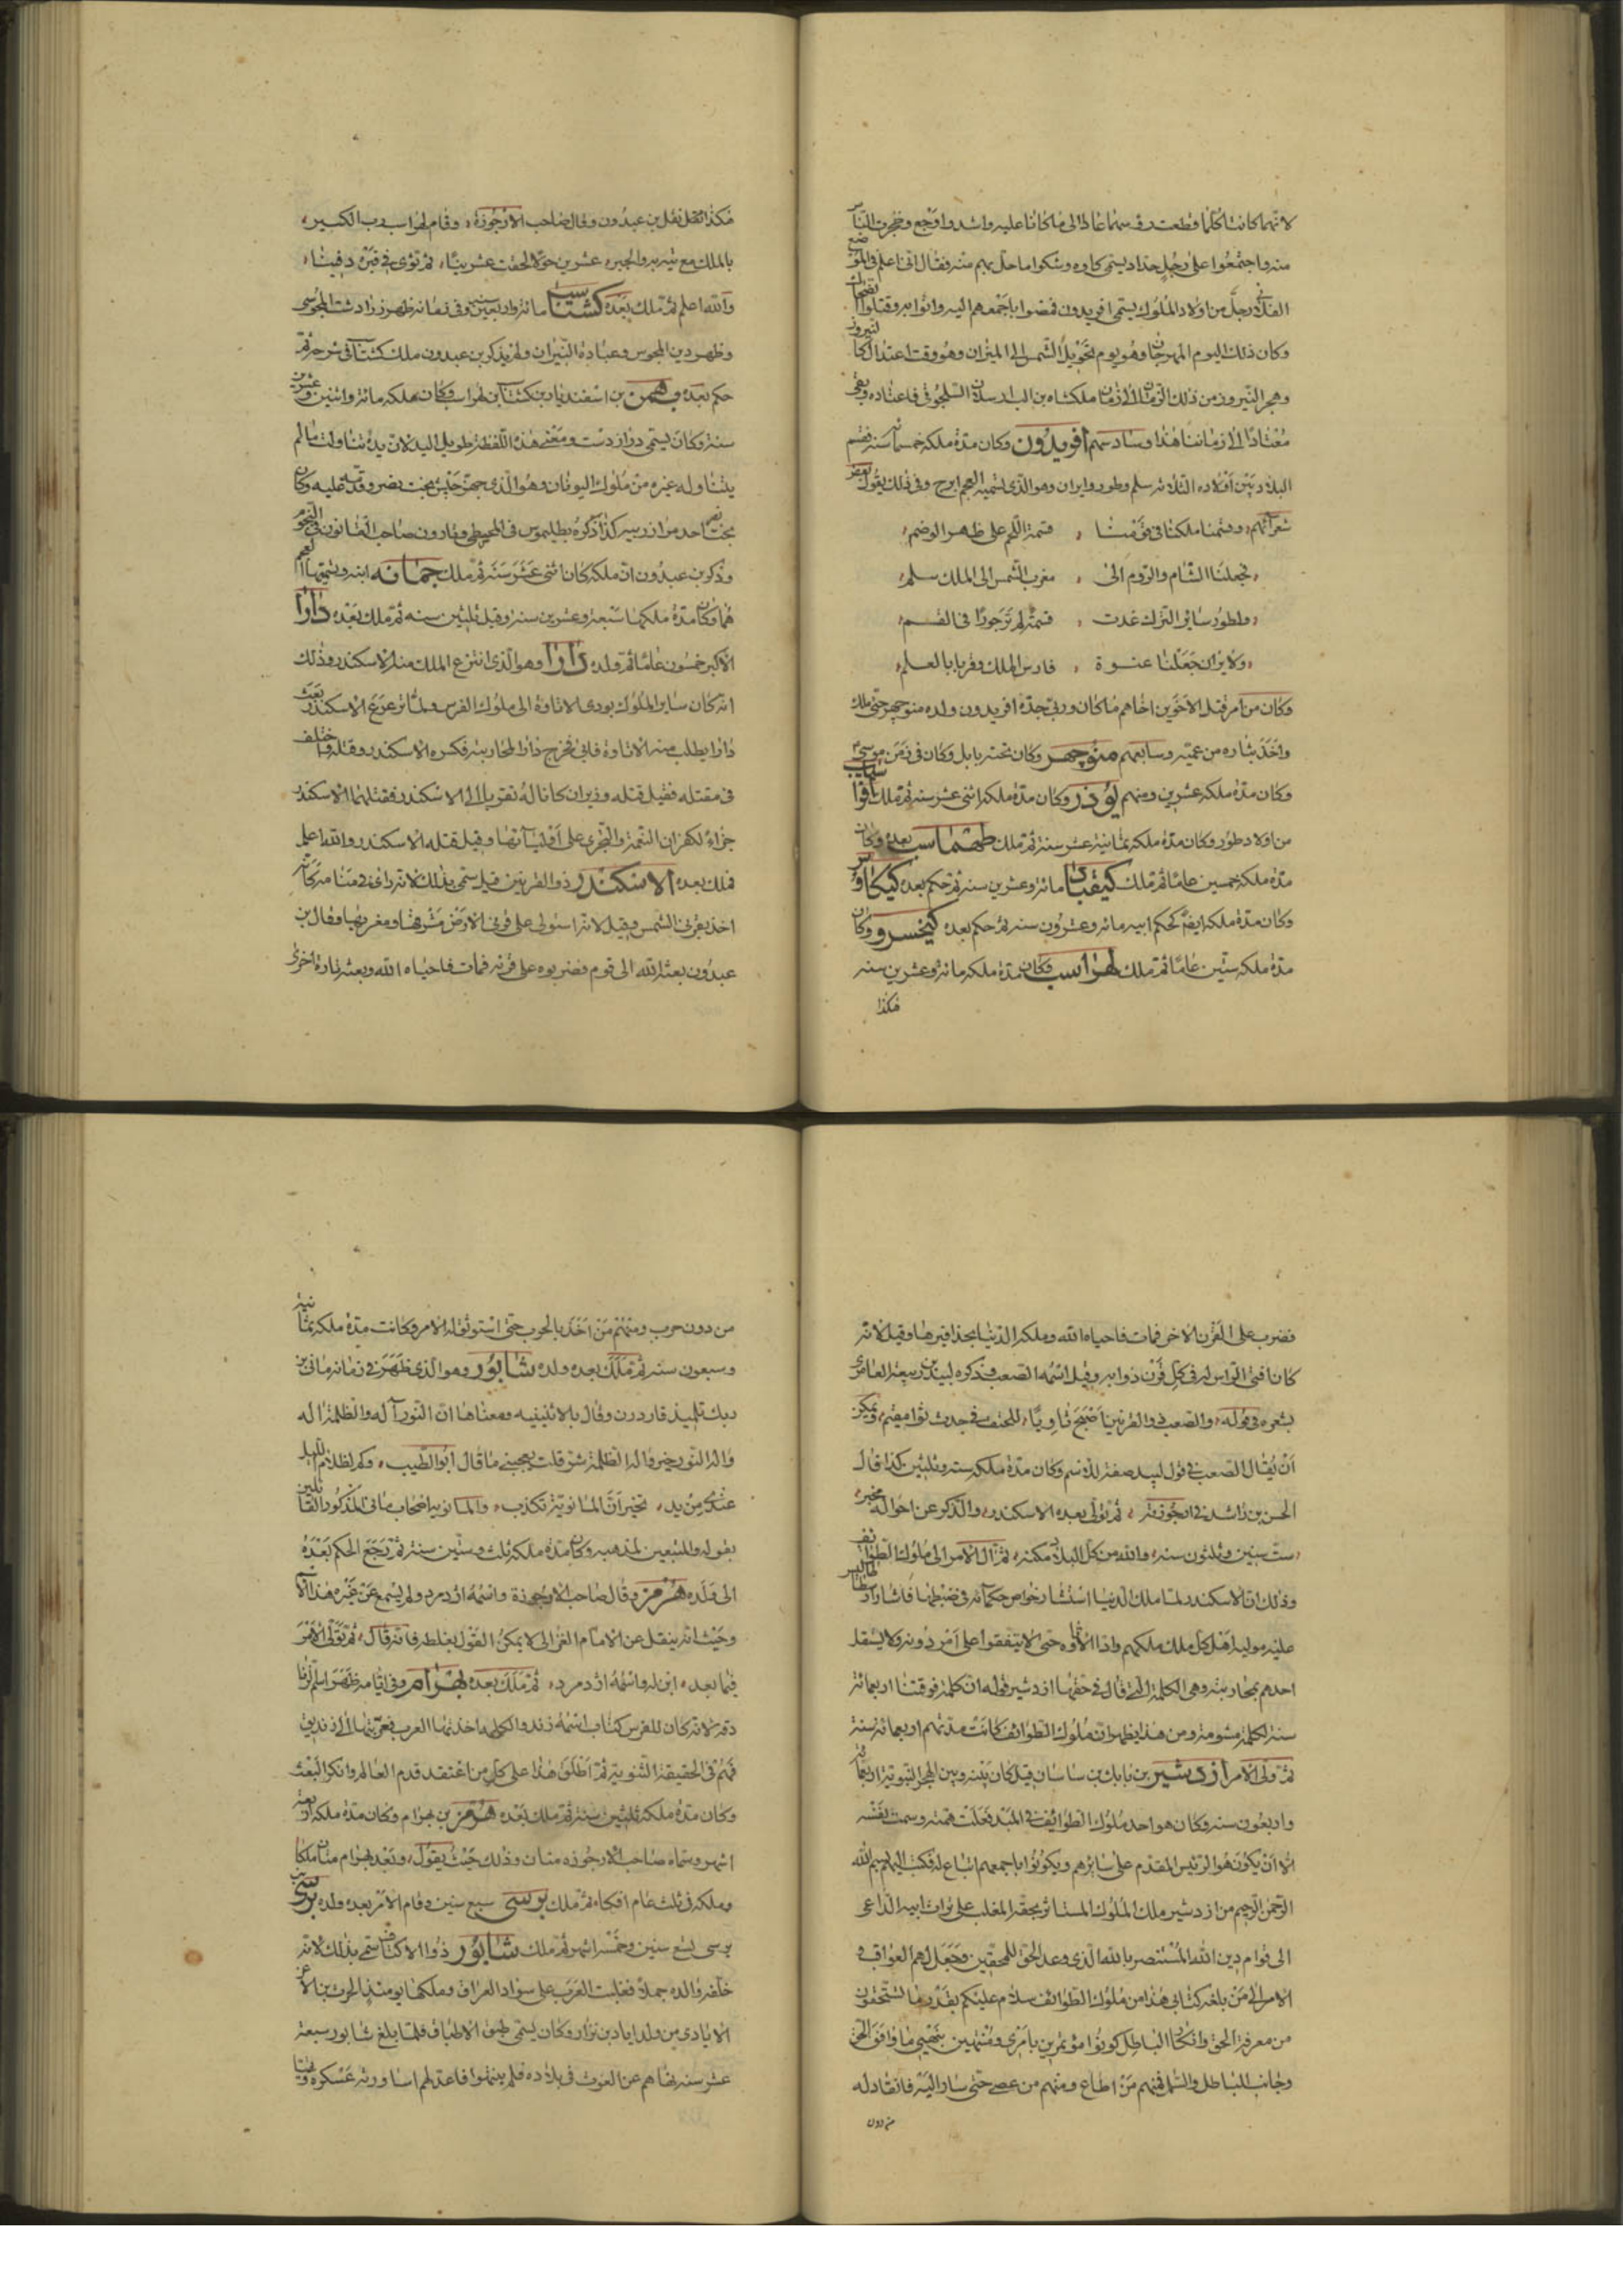 لانهما كانتا كلما قطعت رؤسهما عادا الى ما كانا عليه واشد واوجع وضجرت الناس
منه واجتمعوا على رجل حداد يسمى كاوه وشكوا ما حل بهم منه فقال انا اعلم في الموضع
الفلاني رجل من اولاد الملوك يسمى افريدون فمضوا باجمعهم اليه واتوا به وقتلوا الضحاك
وكان ذلك اليوم المهرجان وهو يوم تحويل الشمس الى الميزان وهو وقت اعتدال كالنيروز
وهجر النيروز من ذلك الزمان الى زمان ملكشاه بن الب ارسلان السلجوقي فاعتاده وبقي
معتادا الى زماننا هذا وسادسهم افريدون وكان مدة ملكه خمسمائة سنة فقسم
البلاد بين اولاده الثلاثه سلم وطور وايران وهو الذي تسميه العجم ايرج وفي ذلك يقول بعض
شعرائهم وقسمنا ملكنا في قسمنا ، قسمة اللحم على ظهر الوضم
فجعلنا الشام والروم الى ، مغرب الشمس الى الملك سلم
ولطور سائر الترك غدت ، قسمة لم تر جورا في القسم
ولايران جعلنا عنوة ، فارس الملك وقربا بالعلم
وكان من امر قتل الاخوين اخاهم ما كان وربى جده افريدون ولده منوجهر حتى ملك
واخذ بثاره من عميه وسابعهم منوجهر وكان تحته بابل وكان في زمن موسى
وكان مدة ملكه عشرين ومنهم نوذر وكان مدة ملكه اثنى عشر سنه ثم ملك افراسياب
من اولاد طور وكان مدة ملكه ثمانية عشر سنة ثم ملك طهماسب بعده وكان
مدة ملكه خمسين عاما ثم ملك كيقباد مائة وعشرين سنه ثم حكم بعده كيكاوس
وكان مدة ملكه ايضا كحكم ابيه مائه وعشرون سنه ثم حكم بعده كيخسرو وكان
مدة ملكه ستين عاما ثم ملك لهراسب وكان مدة ملكه مائة وعشرين سنه
هكذا
هكذا نقل نقل بن عبدون وقال صاحب الارجوزة ، وقام لهراسب رب الكسير ،
بالملك مع تدبيره والجبره عشرين حولا لحقت عشرينا ، ثم ثوى في قبره دفينا ،
والله اعلم ثم ملك بعده كشتاسب مائة واربعين سنه وفي زمانه ظهر زرادشت المجوسي
وظهر دين المجوس وعبادة النيران ولم يذكر بن عبدون ملك كشتاسب في شرحه ثم
حكم بعده بهمن بن اسفنديار بن كشتاسب بن لهراسب وكان ملكه مائة واثنين وعشرين
سنة وكان يسمى دراز دست ومعنى هذه اللفظة طويل اليد لان يده تناولت ما لم
يتناوله غيره من ملوك اليونان وهو الذي جهز جيش بخت نصر وقدمه عليه وكان
بخت نصر احد مرازبيه كذا ذكره بطليموس في المجيطي وقارون صاحب القانون في النجوم
وذكر بن عبدون ان ملكه كان اثنى عشر سنة ثم ملك جمانه ابنه وتسميها العجم
هما وكان مدة ملكها سبعة وعشرين سنة وقيل ثلثين سنه ثم ملك بعده دارا
الاكبر خمسون عاما ثم ولده دارا وهو الذي انتزع الملك منه الاسكندر وذلك
انه كان سائر الملوك يودى الاتاوة الى ملوك الفرس ولما ترعرع الاسكندر بعث
دارا يطلب منه الاتاوة فابى فخرج دارا لمحاربته فكسره الاسكندر وقتله واختلف
في مقتله فقيل قتله وزيران كانا له تقربا الى الاسكندر فقتلهما الاسكندر
جزاء لكفران النعمة والتجري على اوليائها وقيل قتله الاسكندر والله اعلم
فملك بعده الاسكندر ذو القرنين قيل سمي بذلك لانه راى في منامه كانه
اخذ بقرني الشمس وقيل لانه استولى على قرني الارض مشرقها ومغربها وقال بن
عبدون بعثه الله الى قوم فضربوه على قرنه فمات فاحياه الله وبعثه تارة اخرى
فضرب على القرن الاخر فمات فاحياه الله وملكه الدنيا بحذافيرها وقيل لانه
كان افنى الراس له في كل قرن ذوابه وقيل اسمه الصعب وذكره لبيد بن ربيعة العامري
بشعره في قوله ، والصعب ذو القرنين اصبح ثاويا ، للحنف في جدث ثوا مقيم ، ويمكن
ان يقال الصعب في قول لبيد صفة للاسم وكان مدة ملكه سته وثلثين كذا قال
الحسن بن راشد في ارجوزته ، ثم تولى بعده الاسكندر ، والذكر عن احواله مخبر ،
، ست سنين وثلثون سنه ، والله من كل البلاد مكنه ، ثم آل الامر الى ملوك الطوائف
وذلك ان الاسكندر لما ملك الدنيا استشار خواص حكمائه في ضبطها فاشار ارسطاطاليس
عليه موليه اهل كل ملك ملكهم واذا الاتاوه حتى لا يتفقوا على امر دونه ولا يستقل
احدهم بمحاربته وهي الكلمة التي قال في حقها ازدشير قوله ان كلمة فرقتنا اربعمائة
سنة لكلمة مشومة ومن هذا يظهر ان ملوك الطوائف كانت مدتهم اربعمائة سنة
ثم ولى الامر ازدشير بن بابك بن ساسان قيل كان بينه وبين الهجرة النبوية اربعمائة
واربعون سنه وكان هو احد ملوك الطوائف في المبتدا فعلت همته وسمت نفسه
الا ان يكون هو الرئيس المقدم على سائرهم ويكونوا باجمعهم اتباع له فكتب اليهم بسم الله
الرحمن الرحيم من ازدشير ملك الملوك المستاثر بحقه المغلب على تراث ابيه الداعي
الى قوام دين الله المستنصر بالله الذي وعد الحق للمحقين وجعل لهم العواقب
الامر الى من بلغه كتابي هذا من ملوك الطوائف سلام عليكم بقدر ما تستحقون
من معرفة الحق وانكار الباطل كونوا مؤتمرين بامري ومنتهين بنهيي ما وافق الحق
وجانب الباطل والسلم فمنهم من اطاع ومنهم من عصى حتى سار اليه فانقاد له
من دون
من دون حرب ومنهم من اخذ بالحرب حتى استوثق له الامر وكانت مدة ملكه ثمانية
وسبعون سنه ثم ملك بعده ولده شابور وهو الذي ظهر في زمانه ماني بن
ديك تلميذ قاردرن وقال بالاثنينيه ومعناها ان النور اله والظلمة اله
واله النور خير واله الظلمة شر قلت يعجبني ما قال ابو الطيب ، وكم لظلام الليل
عندك من يد ، تخبر ان المانوية تكذب ، والمانويه اصحاب ماني المذكور القائلين
بقوله والمتبعين لمذهبه وكان مدة ملكه ثلث وستين سنة ثم رجع الحكم بعده
الى ولده هرمز وقال صاحب الارجوزة واسمه ازدمرد ولم يسمع عن غيره هذا الاسم
وحيث انه ينقل عن الامام الغزالي لا يمكن القول بغلطه فانه قال ، ثم تولى الامر
فيما بعده ، ابن له واسمه ازدمرد ، ثم ملك بعده بهرام وفي ايامه ظهر اسم الزنا
دقه لانه كان للفرس كتاب اسمه زند والكلمه اخذتها العرب فعربتها الى زنديق
فهم في الحقيقة الثنوية ثم اطلق هذا على كل من اعتقد قدم العالم وانكر البعث
وكان مدة ملكه ثلثين سنة ثم ملك بعده هرمز بن بهرام وكان مدة ملكه اربعة
اشهر وسماه صاحب الارجوزه منان وذلك حيث يقول ، وبعد بهرام منان ملكا
وملكه في ثلث عام افكا ، ثم ملك برسى سبع سنين وقام الامر بعده ولده نرسى بن
برسى لسبع سنين وخمسة اشهر ثم ملك شابور ذو الاكتاف سمي بذلك لانه
خلفه والده حملا فغلبت العرب على سواد العراق وملكها يومئذ الحرث بن الاعز
الايادي من ولد اياد بن نزار وكان يسمى طبق الاطباق فلما بلغ شابور سبعة
عشر سنه نهاهم عن العوث في بلاده فلم ينتهوا فاعد لهم اساورته عسكره